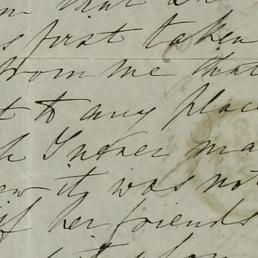 m that
s first taken
from me that
t to any place
h I never ma
ew it, was not
if her friends